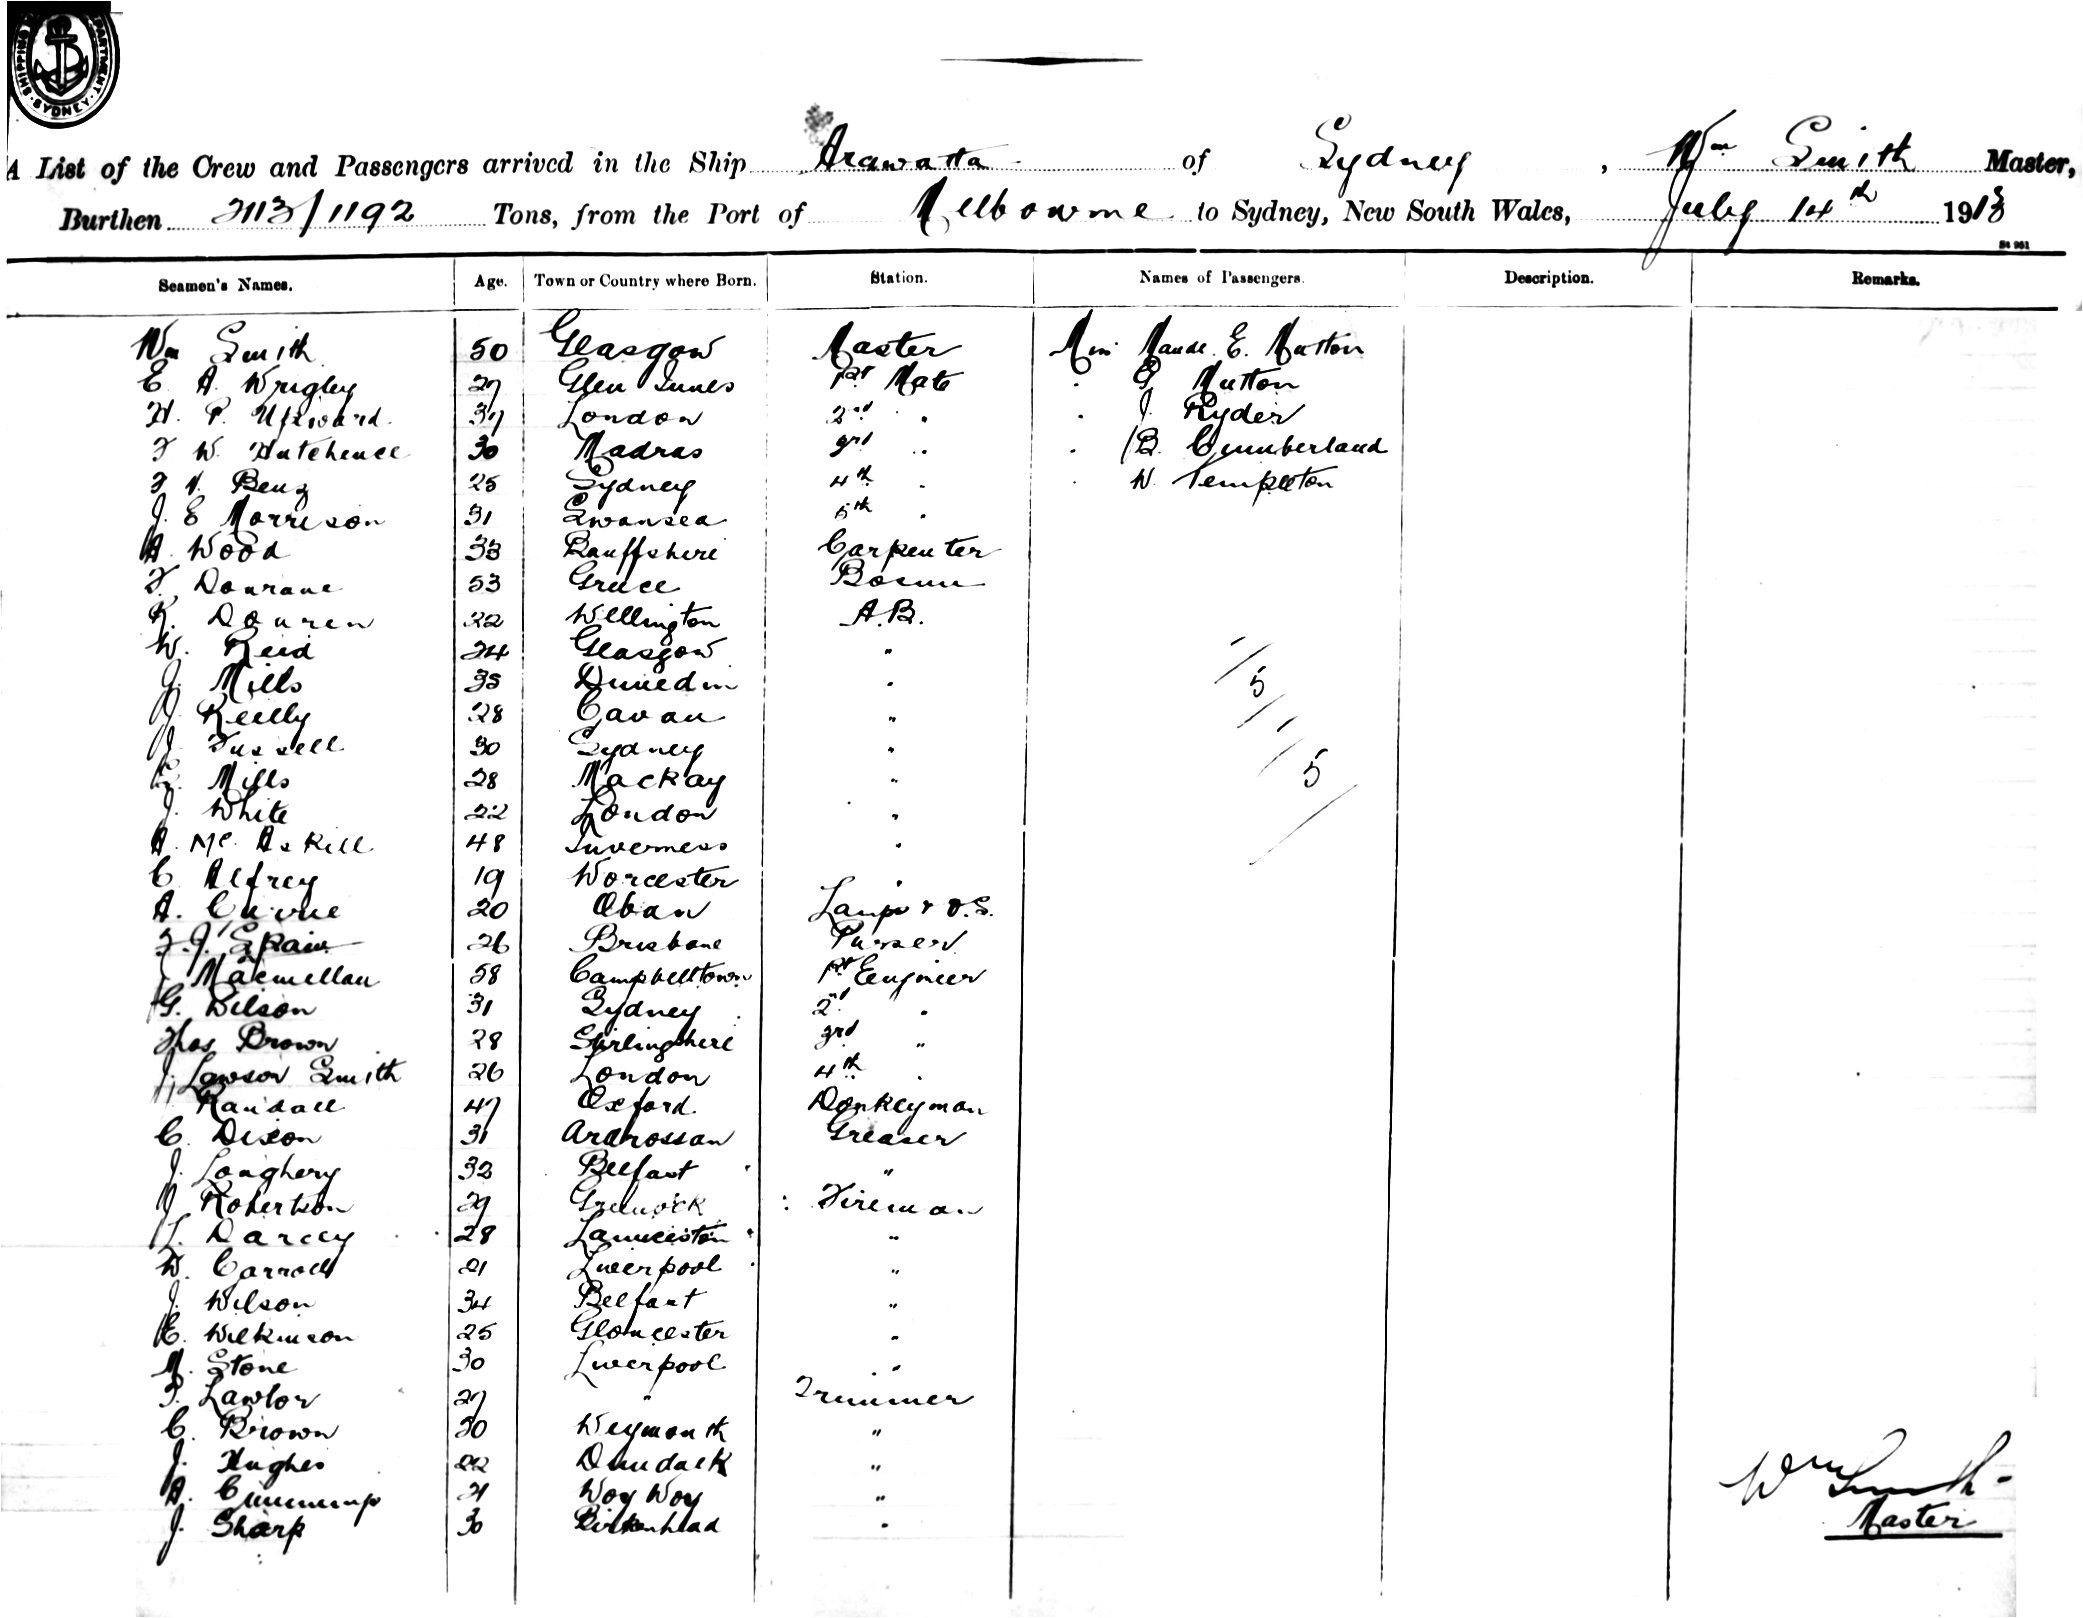 SHIPPING DEPARTMENT SYDNEY
A List of the Crew and Passengers arrived in the Ship Arawatta of Sydney, Wm Smith Master,
Burthen 2113/1192 Tons, from the Port of Melbourne to Sydney, New South Wales, July 14th 1913
St 961
Seamen's Names. Age. Town or Country where Born. Station. Names of Passengers. Description. Remarks.
Wm Smith 50 Glasgow Master Miss Maude. E. Mutton
E A Wrigley 27 Glen Innes 1st Mate " Mutton
H. P. Upward 37 London 2nd " " J. Ryder
F W. Hutchence 30 Madras 3rd " " B. Cumberland
F V. Benz 25 Sydney 4th " " W. Templeton
J. E Morrison 31 Swansea 5th "
A. Wood 33 Banffshire Carpenter
Dourane 53 Greece Bosun
K. Douren 22 Wellington A.B.
W. Reid 24 Glasgow "
J. Mills 35 Dunedin "
J. Reilly 28 Cavan "
J. Fussell 30 Sydney "
Mills 28 Mackay "
J. White 22 London "
A. McAskill 48 Inverness "
C Alfrey 19 Worcester "
A. Currie 20 Oban Lamps & O.S.
F. J. Spain 26 Brisbane Purser
Macmellan 58 Campbelltown 1st Engineer
G. Wilson 31 Sydney 2nd "
Thos Brown 28 Stirlingshire 3rd "
J. Lawson Smith 26 London 4th "
Randall 47 Oxford. Donkeyman
C. Dixon 31 Ardrossan Greaser
J. Loughery 32 Belfast "
J Robertson 29 Greenock Fireman
Darcey 28 Launceston "
W. Carroll 21 Liverpool "
J. Wilson 34 Belfast "
E. Wilkinson 25 Gloucester "
M. Stone 30 Liverpool "
Lawlor 27 " Trimmer
C. Brown 30 Weymouth "
J. Hughes 22 Dundalk "
A. Cummings 21 Woy Woy "
J. Sharp 30 Birkenhead "
1/5/1/1/5/
Wm Smith
Master